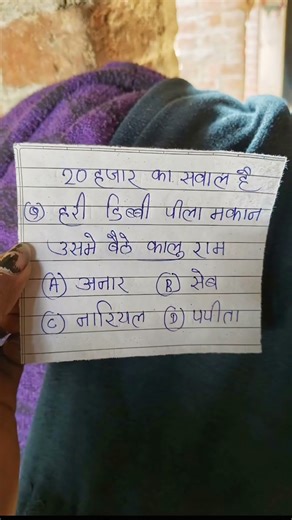 20 हजार का सवाल है
@ हरी डिब्बी पीला मकान
उसमे बैठे कालु राम
(A) अनार (B) सेब
(C) नारियल (D) पपीता